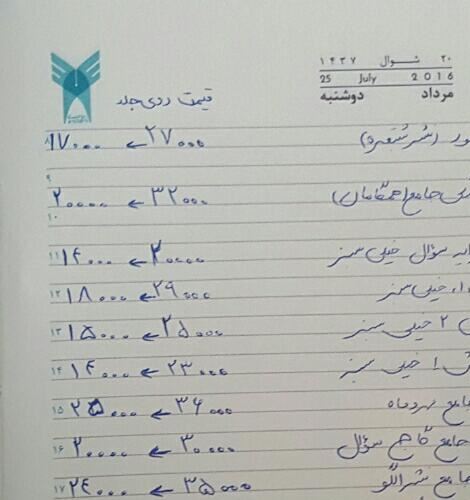 ۲۰ شوال ۱۴۳۷
25 July 2016
مرداد دوشنبه
قیمت روی جلد
(نشر شقره) ۲۷۰۰۰ ← ۱۷۰۰۰
۸
۹
جامع (همگامان) ۳۲۰۰۰ ← ۲۰۰۰۰
۱۰
۱۱ سؤال خیلی سبز ۲۰۰۰۰ ← ۱۴۰۰۰
۱۲ خیلی سبز ۲۹۰۰۰ ← ۱۸۰۰۰
۱۳ ۲ خیلی سبز ۲۵۰۰۰ ← ۱۵۰۰۰
۱۴ ۱ خیلی سبز ۲۳۰۰۰ ← ۱۴۰۰۰
۱۵ جامع مهروماه ۳۶۰۰۰ ← ۲۵۰۰۰
۱۶ جامع گاج سؤال ۳۰۰۰۰ ← ۲۰۰۰۰
۱۷ جامع نشر الگو ۳۵۰۰۰ ← ۲۴۰۰۰